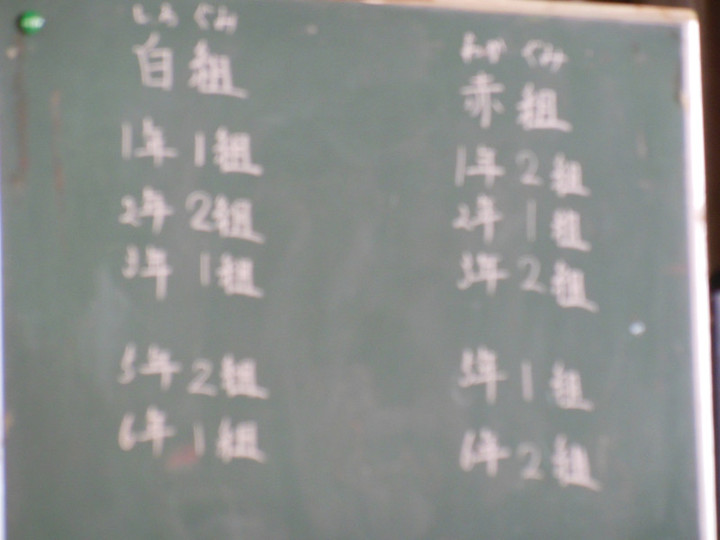 しろ ぐみ
白 組
1年 1組
2年 2組
3年 1組
5年 2組
6年 1組
あか ぐみ
赤 組
1年 2組
2年 1組
3年 2組
5年 1組
6年 2組